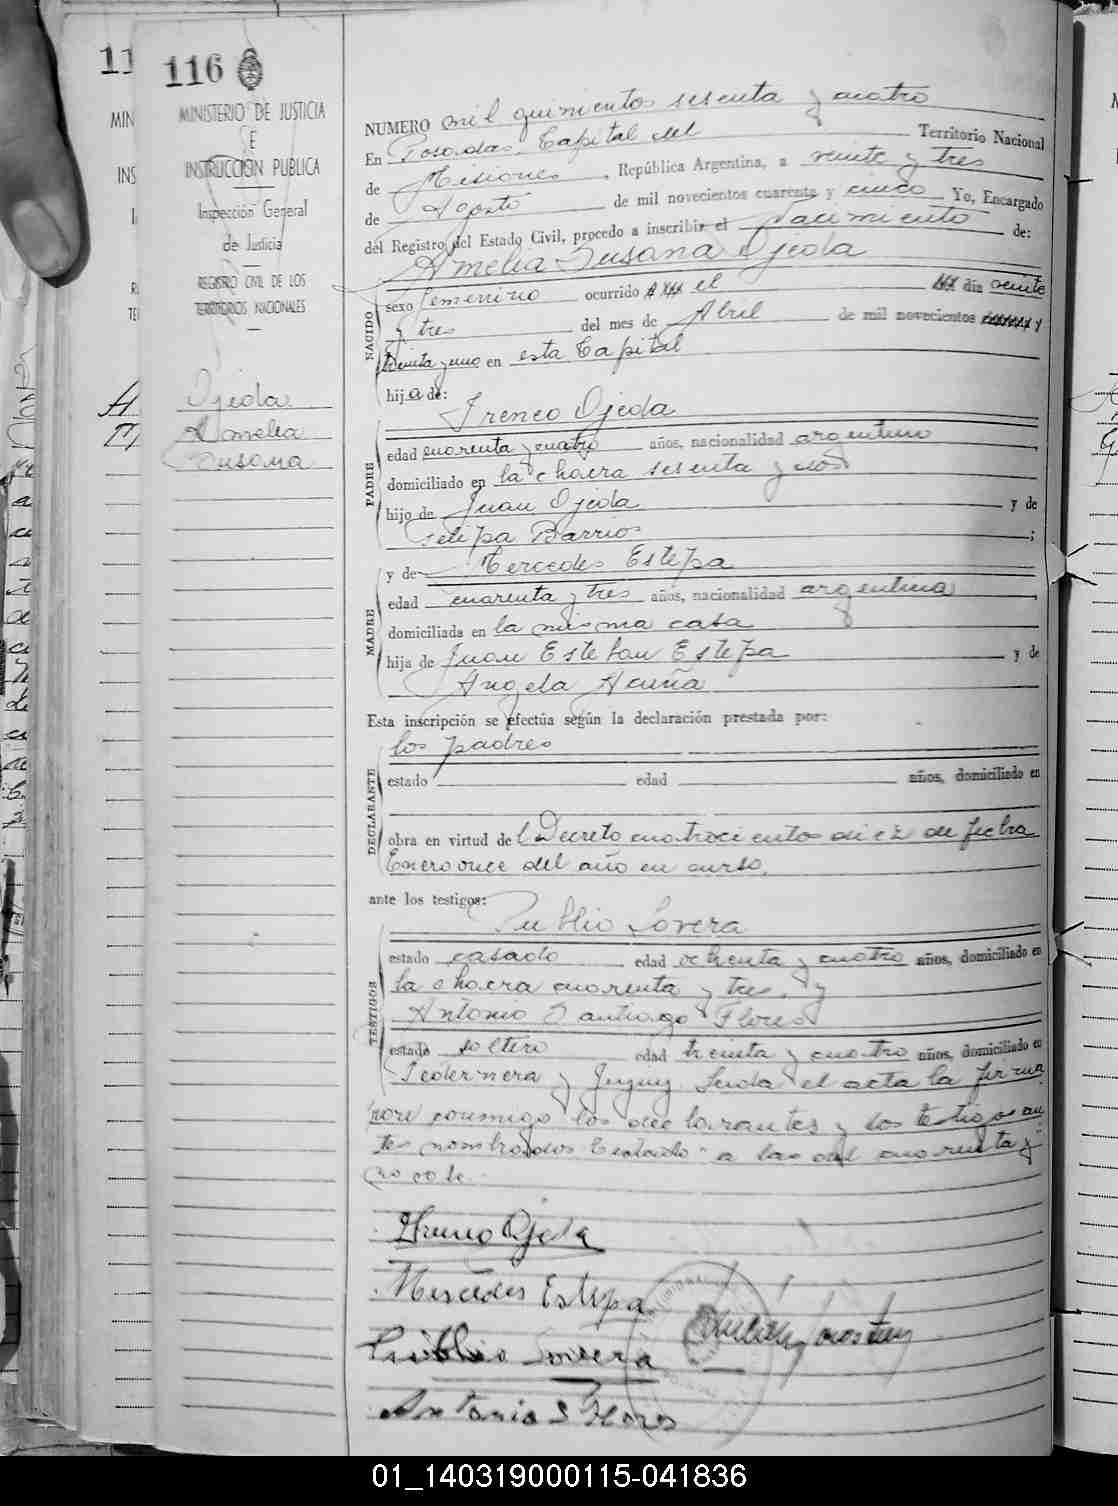 116
MINISTERIO DE JUSTICIA
E
INSTRUCCION PUBLICA
Inspección General
de Justicia
REGISTRO CIVIL DE LOS
TERRITORIOS NACIONALES
Ojeda
Amelia
Susana
NUMERO mil quinientos sesenta y cuatro
En Posadas, Capital del Territorio Nacional
de Misiones, República Argentina, a veinte y tres
de Agosto de mil novecientos cuarenta y cinco Yo, Encargado
del Registro del Estado Civil, procedo a inscribir el nacimiento de:
Amelia Susana Ojeda
NACIDO
sexo femenino ocurrido el día veinte
y tres del mes de Abril de mil novecientos
treinta y uno en esta Capital
hija de:
Ireneo Ojeda
PADRE
edad cuarenta y cuatro años, nacionalidad argentino
domiciliado en la chacra sesenta y dos
hijo de Juan Ojeda y de
Felipa Barrios;
y de Mercedes Estepa
MADRE
edad cuarenta y tres años, nacionalidad argentina
domiciliada en la misma casa
hija de Juan Esteban Estepa y de
Angela Acuña
Esta inscripción se efectúa según la declaración prestada por:
los padres
DECLARANTE
estado edad años, domiciliado en
obra en virtud del Decreto cuatrocientos diez de fecha
Enero once del año en curso.
ante los testigos:
Publio Lovera
TESTIGOS
estado casado edad ochenta y cuatro años, domiciliado en
la chacra cuarenta y tres, y
Antonio Santiago Flores
estado soltero edad treinta y cuatro años, domiciliado en
Pedernera y Jujuy. Leida el acta la firma
ron conmigo los declarantes y los testigos an
tes nombrados Testado "a las del cuarenta y"
no vale.
Ireneo Ojeda
Mercedes Estepa
Publio Lovera
Antonio S Flores
01_140319000115-041836